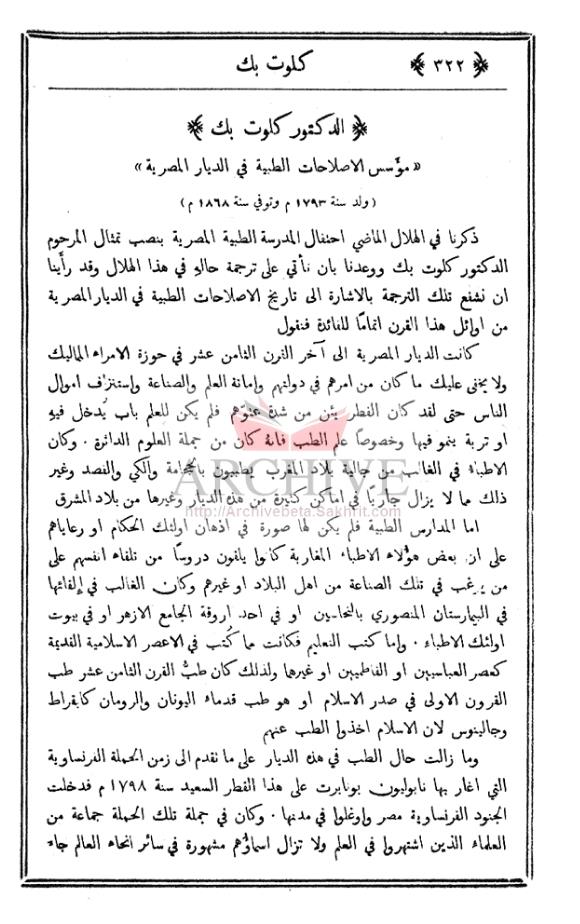 ﴿ ٣٢٢ ﴾ كلوت بك
﴿ الدكتور كلوت بك ﴾
«مؤَسس الاصلاحات الطبية في الديار المصرية»
(ولد سنة ١٧٩٣ م وتوفي سنة ١٨٦٨ م)
ذكرنا في الهلال الماضي احتفال المدرسة الطبية المصرية بنصب تمثال المرحوم
الدكتور كلوت بك ووعدنا بان نأتي على ترجمة حاله في هذا الهلال وقد رأَينا
ان نشفع تلك الترجمة بالاشارة الى تاريخ الاصلاحات الطبية في الديار المصرية
من اوائل هذا القرن اتمامًا للفائدة فنقول
كانت الديار المصرية الى آخر القرن الثامن عشر في حوزة الامراء المماليك
ولا يخفى عليك ما كان من امرهم في دولتهم وإماتة العلم والصناعة وإستنزاف اموال
الناس حتى لقد كان القطر يئن من شدة عتوّهم فلم يكن للعلم باب يُدخل فيهِ
او تربة ينمو فيها وخصوصاً علم الطب فانهُ كان من جملة العلوم الداثرة ٠ وكان
الاطباءُ في الغالب من جالية بلاد المغرب يطببون بالحجامة والكي والفصد وغير
ذلك مما لا يزال جاريًا في اماكن كثيرة من هذه الديار وغيرها من بلاد المشرق
ARCHIVE
http://Archivebeta.Sakhrit.com
اما المدارس الطبية فلم يكن لها صورة في اذهان اولئك الحكام او رعاياهم
على ان بعض هؤُلاء الاطباء المغاربة كانوا يلقون دروسًا من تلقاء انفسهم على
من يرغب في تلك الصناعة من اهل البلاد او غيرهم وكان الغالب في إلقائها
في البيمارستان المنصوري بالنحاسين او في احد اروقة الجامع الازهر او في بيوت
اولئك الاطباء ٠ وإما كتب التعليم فكانت مما كُتب في الاعصر الاسلامية القديمة
كعصر العباسيين او الفاطميين او غيرها ولذلك كان طبُّ القرن الثامن عشر طب
القرون الاولى في صدر الاسلام او هو طب قدماء اليونان والرومان كابقراط
وجالينوس لان الاسلام اخذوا الطب عنهم
وما زالت حال الطب في هذه الديار على ما تقدم الى زمن الحملة الفرنساوية
التي اغار بها نابوليون بونابرت على هذا القطر السعيد سنة ١٧٩٨ م فدخلت
الجنود الفرنساوية مصر واوغلوا في مدنها ٠ وكان في جملة تلك الحملة جماعة من
العلماء الذين اشتهروا في العلم ولا تزال اسماؤُهم مشهورة في سائر انحاء العالم جاء